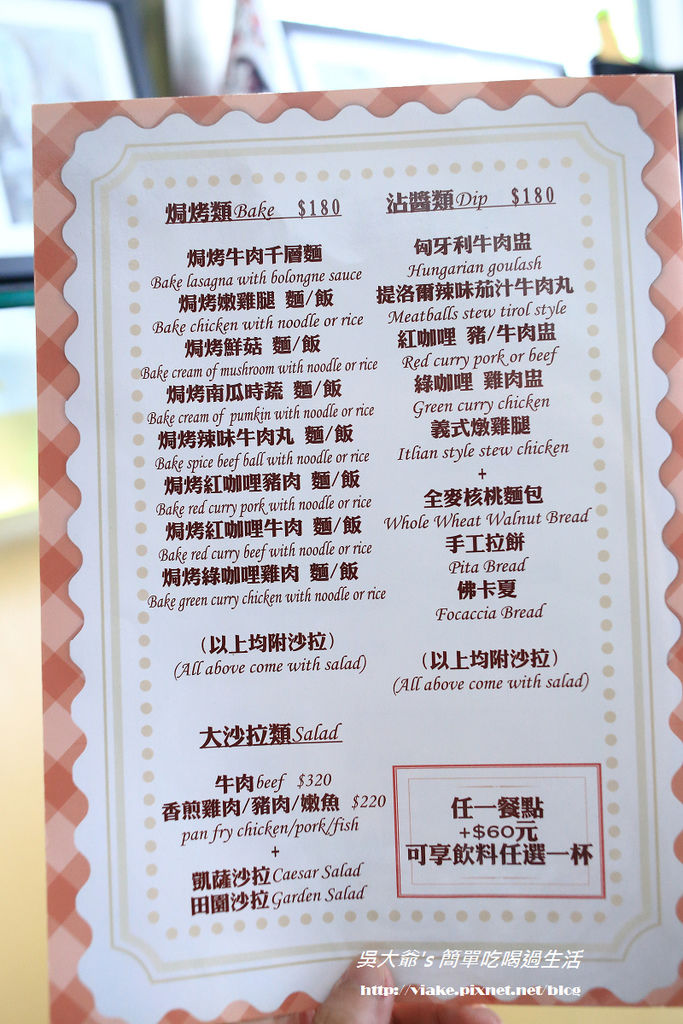 焗烤類Bake $180
焗烤牛肉千層麵
Bake lasagna with bolongne sauce
焗烤嫩雞腿 麵/飯
Bake chicken with noodle or rice
焗烤鮮菇 麵/飯
Bake cream of mushroom with noodle or rice
焗烤南瓜時蔬 麵/飯
Bake cream of pumkin with noodle or rice
焗烤辣味牛肉丸 麵/飯
Bake spice beef ball with noodle or rice
焗烤紅咖哩豬肉 麵/飯
Bake red curry pork with noodle or rice
焗烤紅咖哩牛肉 麵/飯
Bake red curry beef with noodle or rice
焗烤綠咖哩雞肉 麵/飯
Bake green curry chicken with noodle or rice
(以上均附沙拉)
(All above come with salad)
沾醬類Dip $180
匈牙利牛肉盅
Hungarian goulash
提洛爾辣味茄汁牛肉丸
Meatballs stew tirol style
紅咖哩 豬/牛肉盅
Red curry pork or beef
綠咖哩 雞肉盅
Green curry chicken
義式燉雞腿
Itlian style stew chicken
+
全麥核桃麵包
Whole Wheat Walnut Bread
手工拉餅
Pita Bread
佛卡夏
Focaccia Bread
(以上均附沙拉)
(All above come with salad)
大沙拉類Salad
牛肉beef $320
香煎雞肉/豬肉/嫩魚 $220
pan fry chicken/pork/fish
+
凱薩沙拉Caesar Salad
田園沙拉Garden Salad
任一餐點
+$60元
可享飲料任選一杯
吳大爺's 簡單吃喝過生活
http://viake.pixnet.net/blog